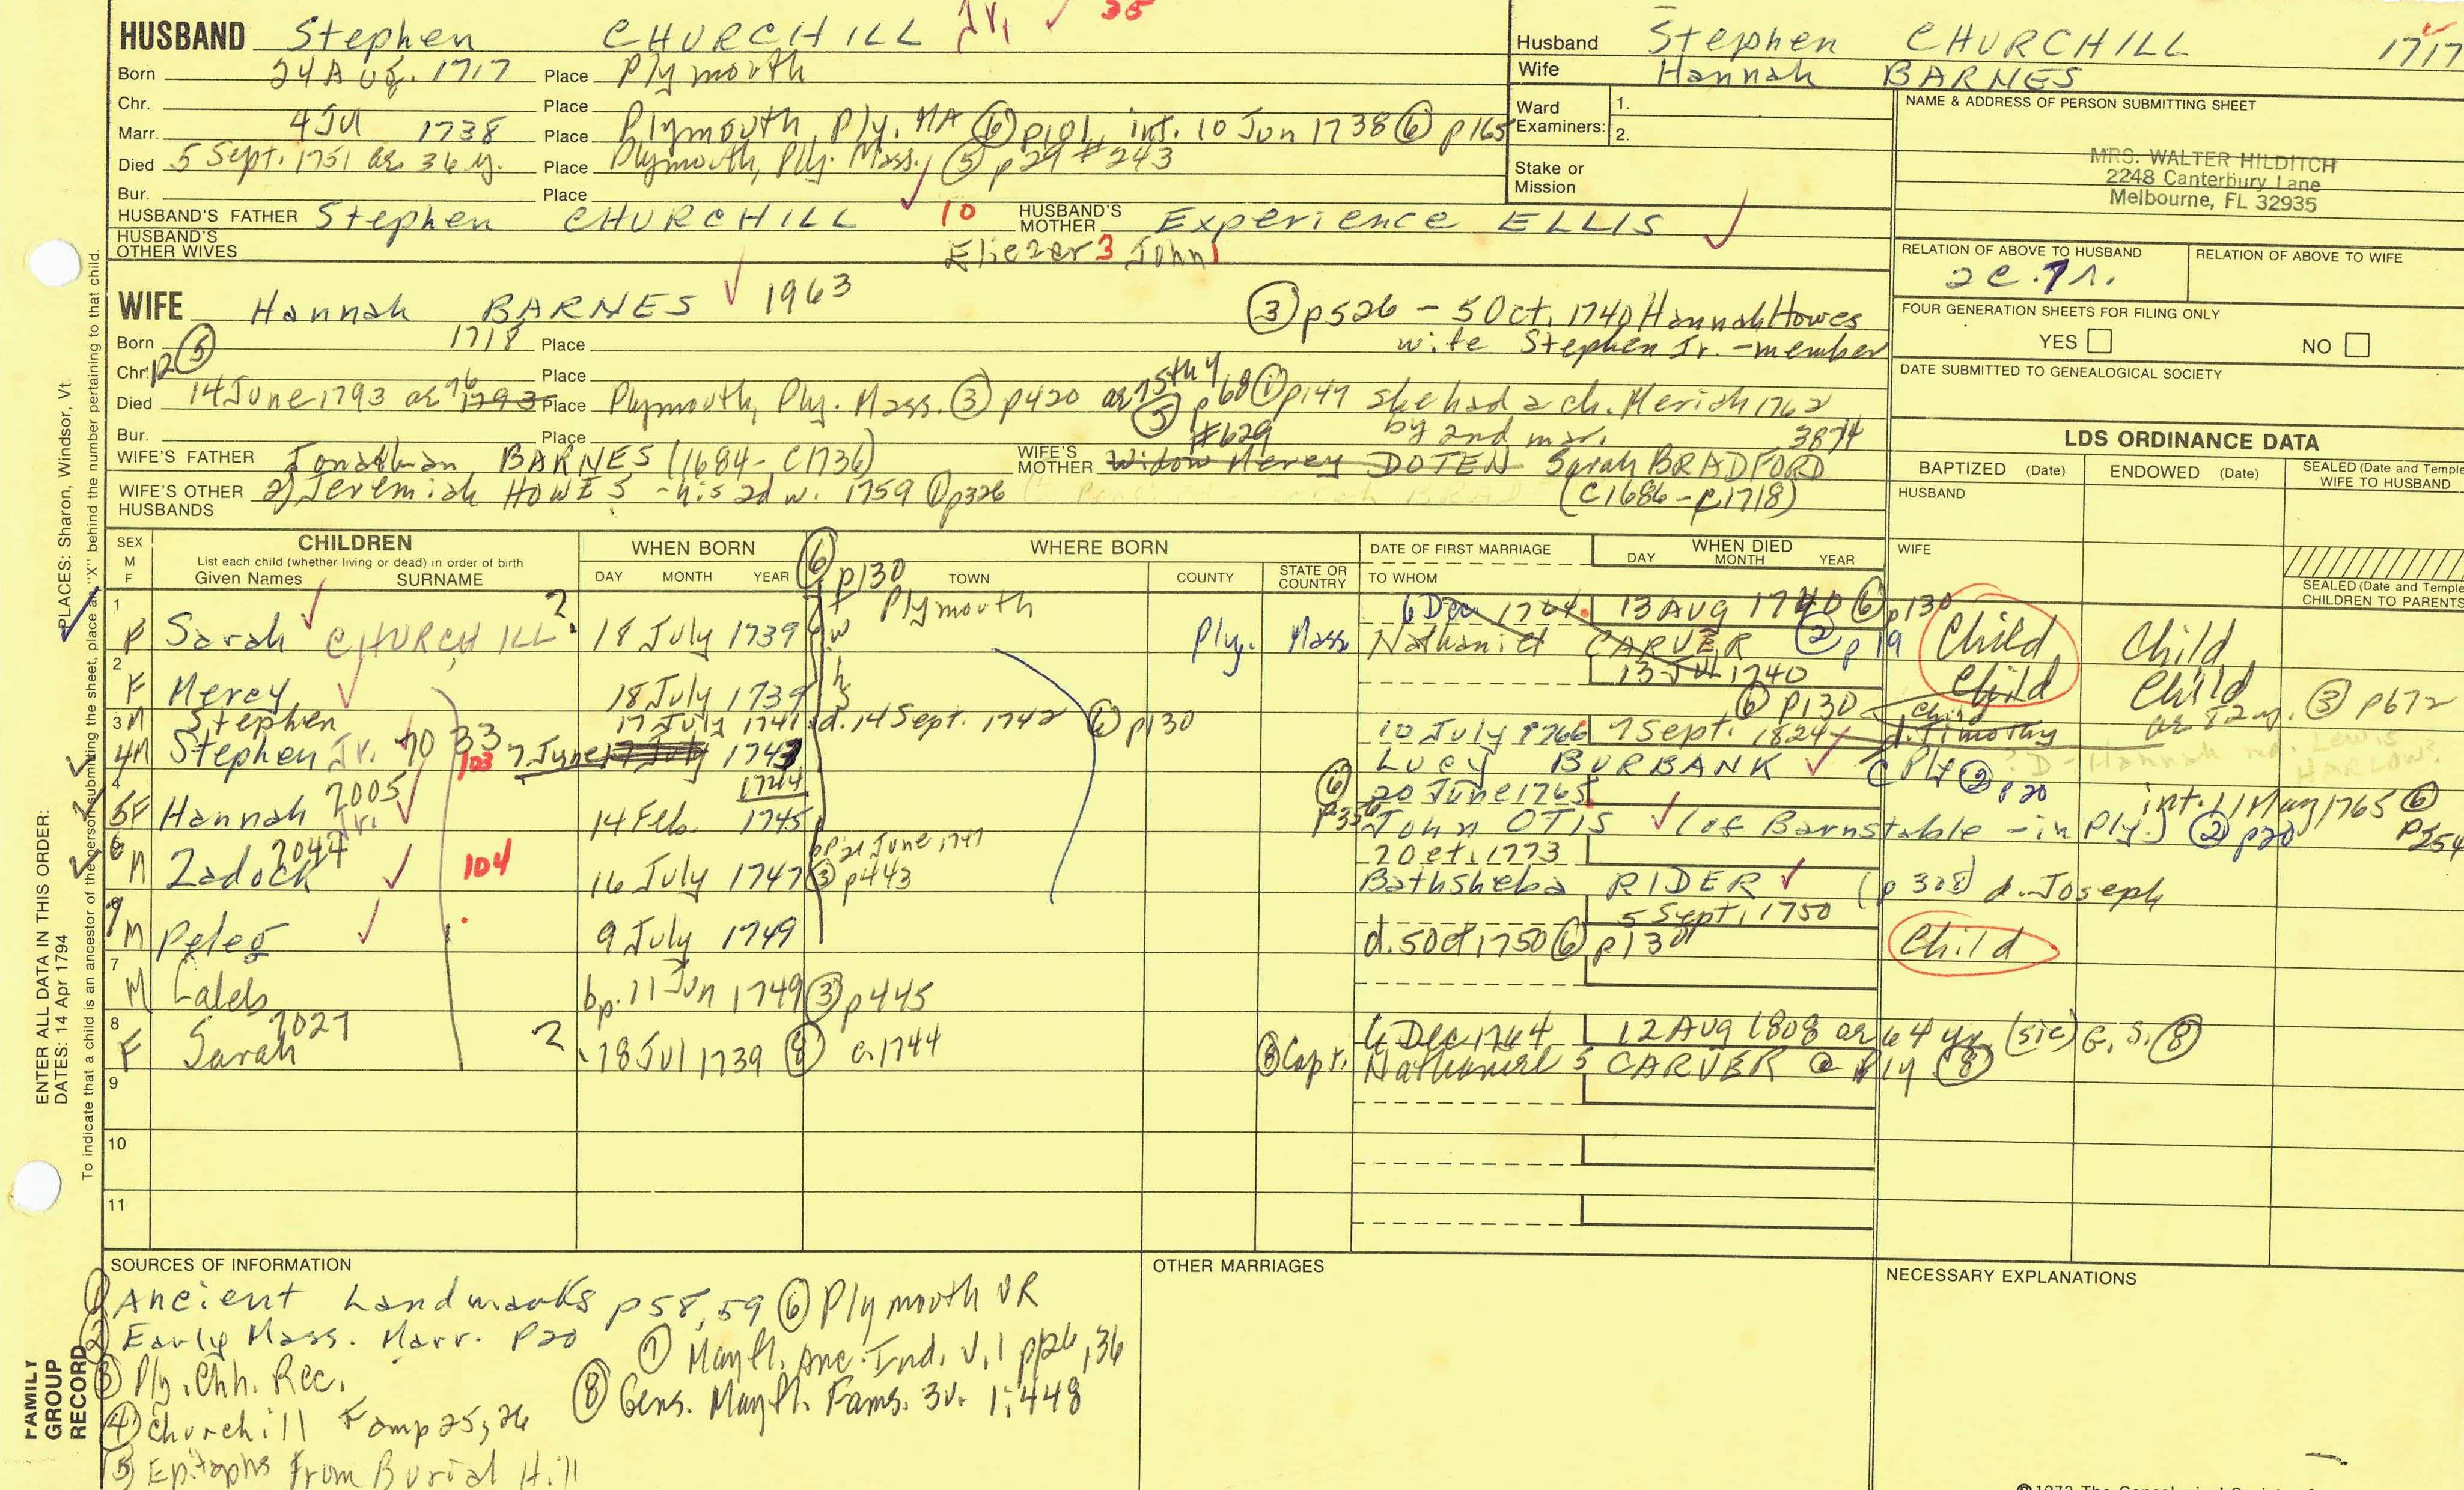 HUSBAND Stephen CHURCHILL Jr. ✓ 35
Born 24 Aug. 1717 Place Plymouth
Chr. Place
Marr. 4 Jul 1738 Place Plymouth, Ply, MA ⑥ p101, int. 10 Jun 1738 ⑥ p165
Died 5 Sept. 1751 ae 36 y. Place Plymouth, Ply. Mass. ⑤ p29 #243
Bur. Place
HUSBAND'S FATHER Stephen CHURCHILL ✓ 10 HUSBAND'S MOTHER Experience ELLIS ✓
HUSBAND'S OTHER WIVES Eliezer 3 John 1
Husband Stephen CHURCHILL 1717
Wife Hannah BARNES
Ward Examiners: 1.
2.
Stake or Mission
NAME & ADDRESS OF PERSON SUBMITTING SHEET
MRS. WALTER HILDITCH
2248 Canterbury Lane
Melbourne, FL 32935
RELATION OF ABOVE TO HUSBAND RELATION OF ABOVE TO WIFE
2c.7r.
FOUR GENERATION SHEETS FOR FILING ONLY
YES NO
DATE SUBMITTED TO GENEALOGICAL SOCIETY
WIFE Hannah BARNES ✓ 1963
③ p526 - 5 Oct. 1740 Hannah Howes
wife Stephen Jr. - member
Born 1718 Place
Chr. 12 ⑤ Place
Died 14 June 1793 ae 76 1793 Place Plymouth, Ply. Mass. ③ p420 ae 75th y ⑤ p68 #629 ① p147 she had a ch. Merich 1762
by 2nd mar. 3874
Bur. Place
WIFE'S FATHER Jonathan BARNES (1684- C1736) WIFE'S MOTHER Widow Mercy DOTEN Sarah BRADFORD
(C1686-p1718)
WIFE'S OTHER HUSBANDS 2) Jeremiah HOWES - his 2d w. 1759 ① p326
LDS ORDINANCE DATA
BAPTIZED (Date) ENDOWED (Date) SEALED (Date and Temple) WIFE TO HUSBAND
HUSBAND
WIFE
SEALED (Date and Temple) CHILDREN TO PARENTS
SEX M F CHILDREN
List each child (whether living or dead) in order of birth
Given Names SURNAME
WHEN BORN DAY MONTH YEAR
WHERE BORN TOWN COUNTY STATE OR COUNTRY
⑥ p130
DATE OF FIRST MARRIAGE TO WHOM
WHEN DIED DAY MONTH YEAR
1 F Sarah CHURCHILL ? 18 July 1739 Plymouth Ply. Mass 6 Dec 1764 13 Aug 1740 ⑥ p130 Child Child
Nathaniel CARVER ② p19
2 F Mercy ✓ 18 July 1739 13 Jul 1740 ⑥ p130 Child Child
3 M Stephen 17 July 1741 d. 14 Sept. 1742 ⑥ p130 Child
4 M Stephen Jr. 70 33 103 7 June 17 July 1743 10 July 1766 7 Sept. 1824 d. Timothy ae 82 y. ③ p672
1744 Lucy BURBANK ✓ C Ply ② p20
? D - Hannah md. Lewis HARLOW?
4 5 F Hannah Jr. 7005 ✓ 14 Feb. 1745 ⑥ p356 20 June 1765 int. 11 May 1765 ⑥ p254
John OTIS ✓ (of Barnstable - in Ply.) ② p20
6 M Zadock 7044 ✓ 104 16 July 1747 bp 21 June 1747 ③ p443 7 Oct. 1773
Bathsheba RIDER ✓ (p 328) d. Joseph
7 M Peleg ✓ 9 July 1749 5 Sept. 1750 Child
d. 5 Oct 1750 ⑥ p130
7 M Caleb bp. 11 Jun 1749 ③ p445
8 F Sarah 7027 ? 18 Jul 1739 ⑧ c1744 6 Dec 1764 12 Aug 1808 ae 64 yr (sic) G.S. ⑧
⑧ Capt. Nathaniel 5 CARVER @ Ply ⑧
9
10
11
SOURCES OF INFORMATION OTHER MARRIAGES NECESSARY EXPLANATIONS
① Ancient Landmarks p58, 59 ⑥ Plymouth VR
② Early Mass. Marr. p20 ⑦ Mayfl. Anc. Ind. v.1 pp26, 36
③ Ply. Chh. Rec. ⑧ Gens. Mayfl. Fams. 3v. 1:448
④ Churchill Fam p25, 26
⑤ Epitaphs From Burial Hill
FAMILY GROUP RECORD
ENTER ALL DATA IN THIS ORDER:
DATES: 14 Apr 1794
PLACES: Sharon, Windsor, Vt
To indicate that a child is an ancestor of the person submitting the sheet, place an "X" behind the number pertaining to that child.